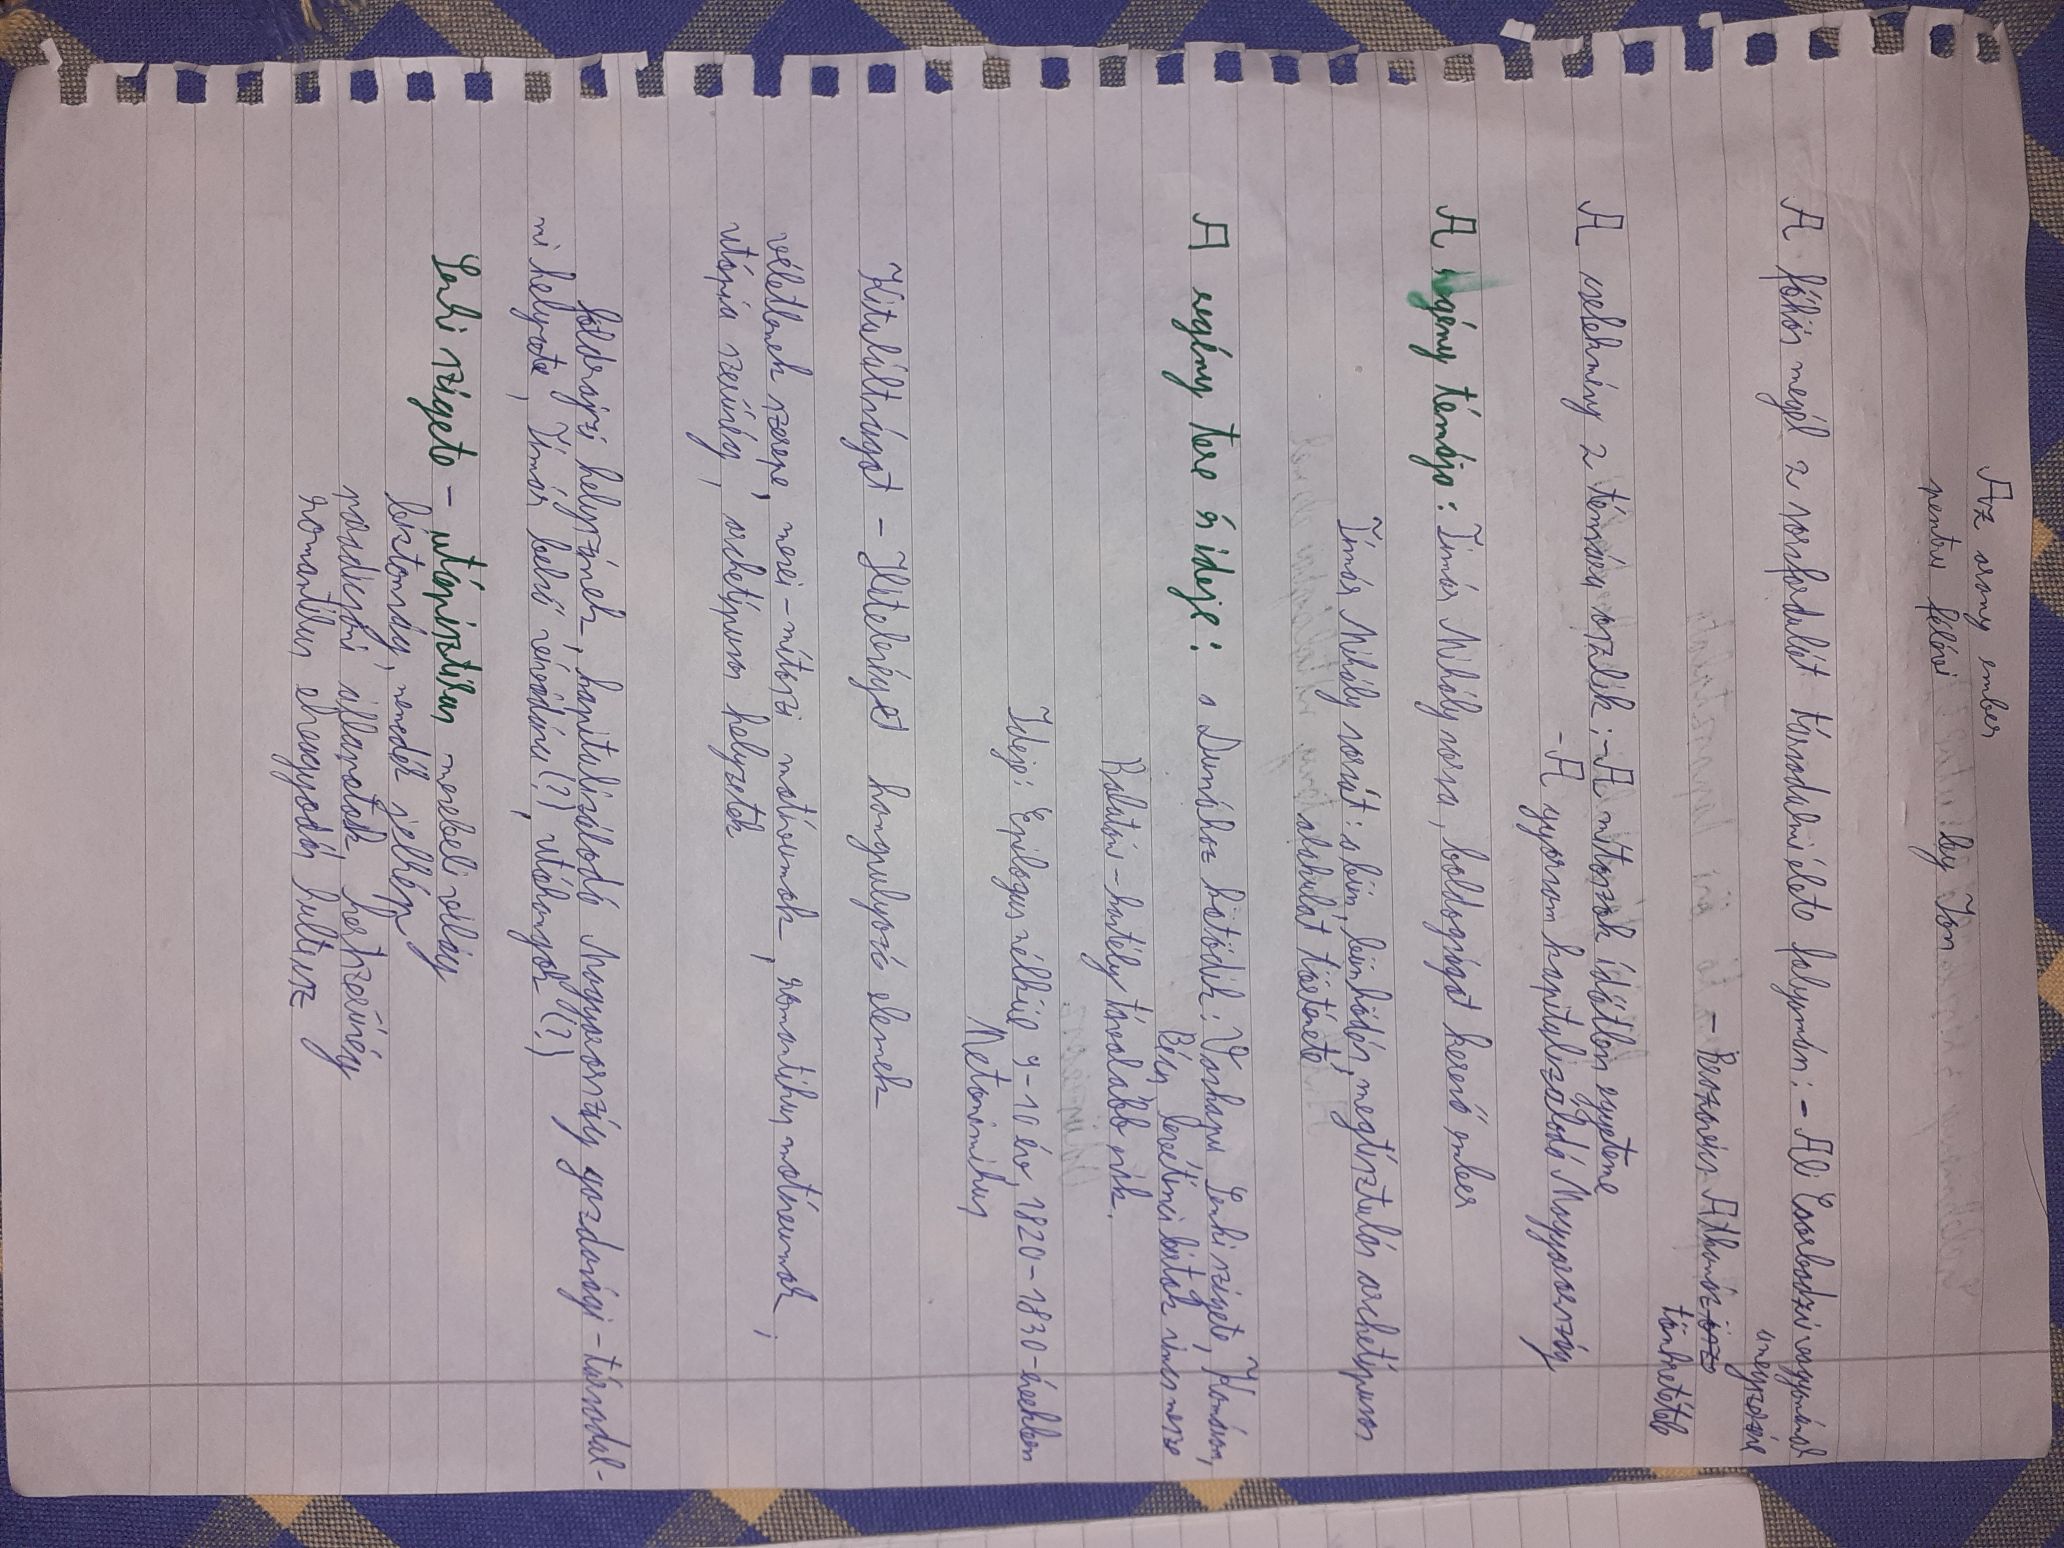 Az arany ember
pentru félévi by Ion
A főhős megél 2 sorsfordulót társadalmi élete folyamán: - Ali Csorbadzsi vagyonának
a megszerzése
- Brazovics Athanáz
tönkretétele
A cselekmény 2 témára oszlik: - A mítoszok időtlen egyeteme
- A gyorsan kapitalizálodó Magyarország
A regény témája: Timár Mihály sorsa, boldogságot kereső ember
Tímár Mihály sorsát: a bűn, bűnhődés, megtísztulás archetípusos
alakulát története
A regény tere és ideje: a Dunához kötődik: Vaskapu, Senki szigete, Komárom,
Bécs, levetinci birtok sincs messze
Balatoni - kastély távolabb esik.
Ideje: Epilogus nélkül 9-10 év, 1820-1830-években
Metonimikus
Kitaláltságot - Hitelességet hangsulyozó elemek
véletlenek szerepe, mesei - mítoszi motívumok, romantikus motívumok,
utópia szerűség, archetípusos helyzetek
földrajzi helyszínek, kapitalizálodó Magyarország gazdasági - társadal-
mi helyzete, Tímár belső vívódása (?), utóhangok (?)
Senki szigete - utópisztikus mesebeli világ
biztonság, menedék jelkép
paradicsomi állapotok, kertszerűség
romantikus elvagyodás kultusz